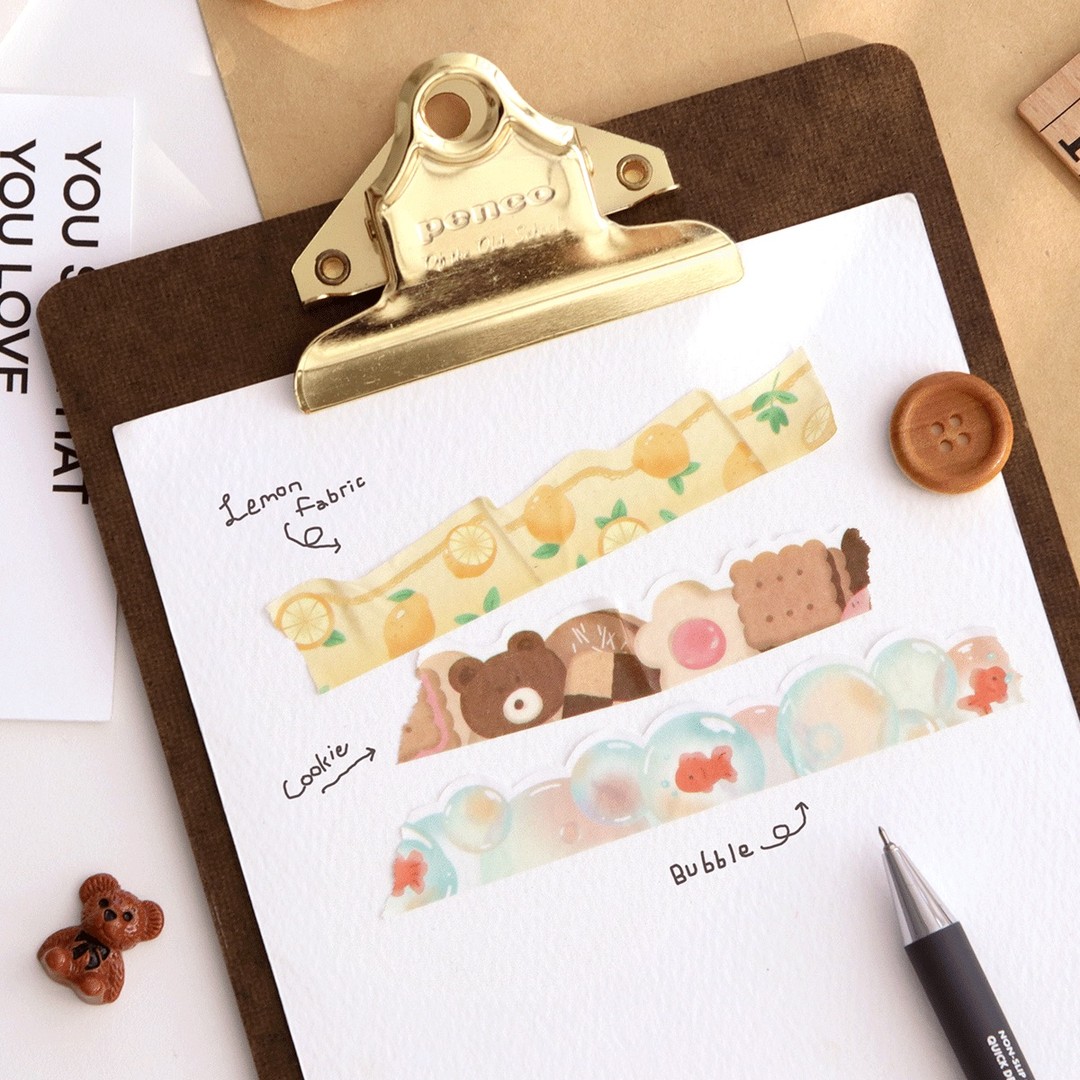 YOU S
HAT
YOU LOVE
penco
Lemon
Fabric
Cookie
Bubble
NON-SLIP
QUICK D